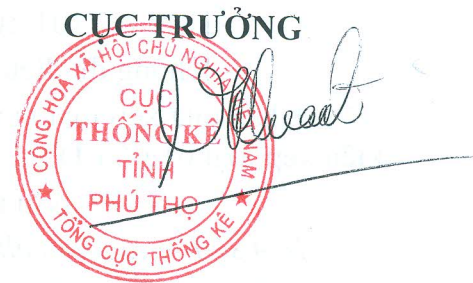 CỤC TRƯỞNG
CỘNG HOÀ XÃ HỘI CHỦ NGHĨA VIỆT NAM
CỤC
THỐNG KÊ
TỈNH
PHÚ THỌ
★ TỔNG CỤC THỐNG KÊ ★